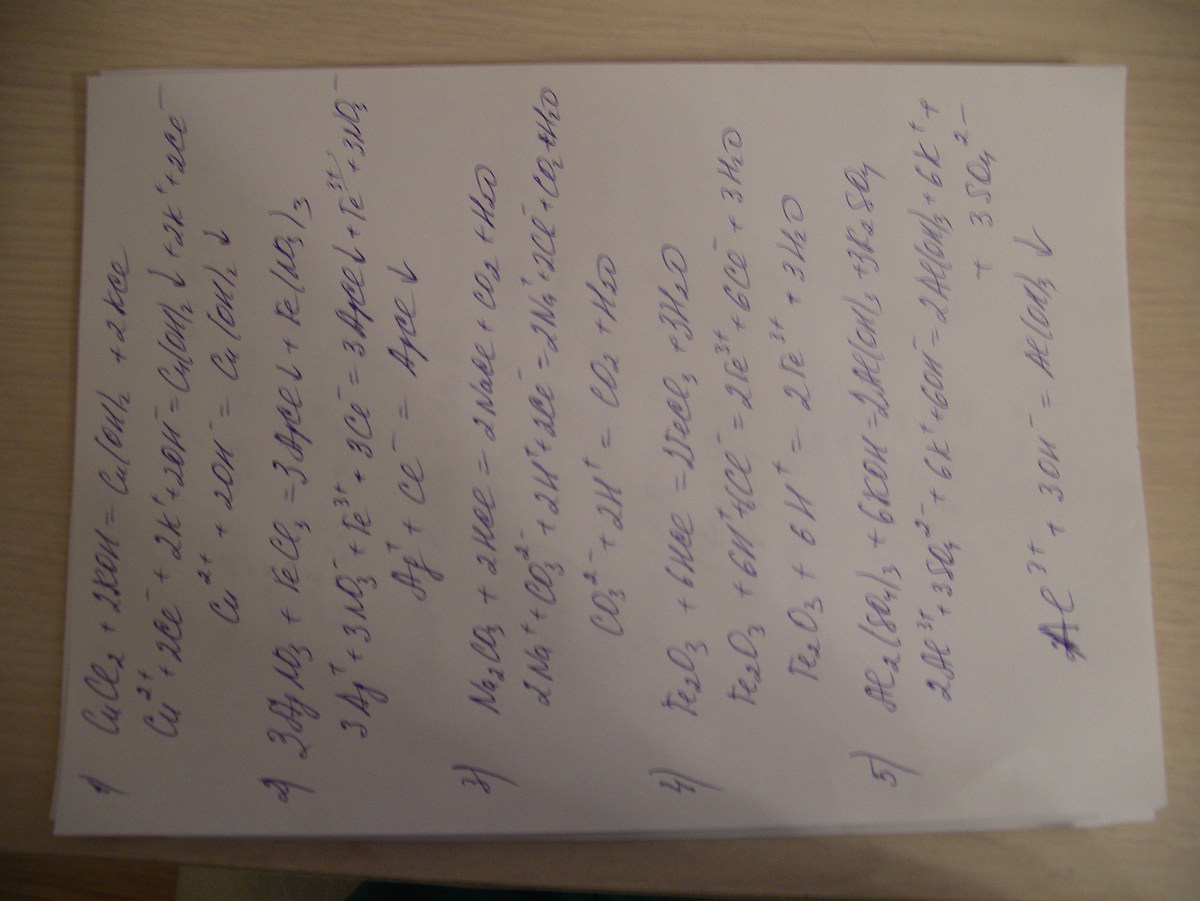 1) CuCl₂ + 2KOH = Cu(OH)₂ + 2KCl
Cu²⁺ + 2Cl⁻ + 2K⁺ + 2OH⁻ = Cu(OH)₂↓ + 2K⁺ + 2Cl⁻
Cu²⁺ + 2OH⁻ = Cu(OH)₂↓
2) 3AgNO₃ + FeCl₃ = 3AgCl↓ + Fe(NO₃)₃
3Ag⁺ + 3NO₃⁻ + Fe³⁺ + 3Cl⁻ = 3AgCl↓ + Fe³⁺ + 3NO₃⁻
Ag⁺ + Cl⁻ = AgCl↓
3) Na₂CO₃ + 2HCl = 2NaCl + CO₂ + H₂O
2Na⁺ + CO₃²⁻ + 2H⁺ + 2Cl⁻ = 2Na⁺ + 2Cl⁻ + CO₂ + H₂O
CO₃²⁻ + 2H⁺ = CO₂ + H₂O
4) Fe₂O₃ + 6HCl = 2FeCl₃ + 3H₂O
Fe₂O₃ + 6H⁺ + 6Cl⁻ = 2Fe³⁺ + 6Cl⁻ + 3H₂O
Fe₂O₃ + 6H⁺ = 2Fe³⁺ + 3H₂O
5) Al₂(SO₄)₃ + 6KOH = 2Al(OH)₃ + 3K₂SO₄
2Al³⁺ + 3SO₄²⁻ + 6K⁺ + 6OH⁻ = 2Al(OH)₃ + 6K⁺ +
+ 3SO₄²⁻
Al³⁺ + 3OH⁻ = Al(OH)₃↓